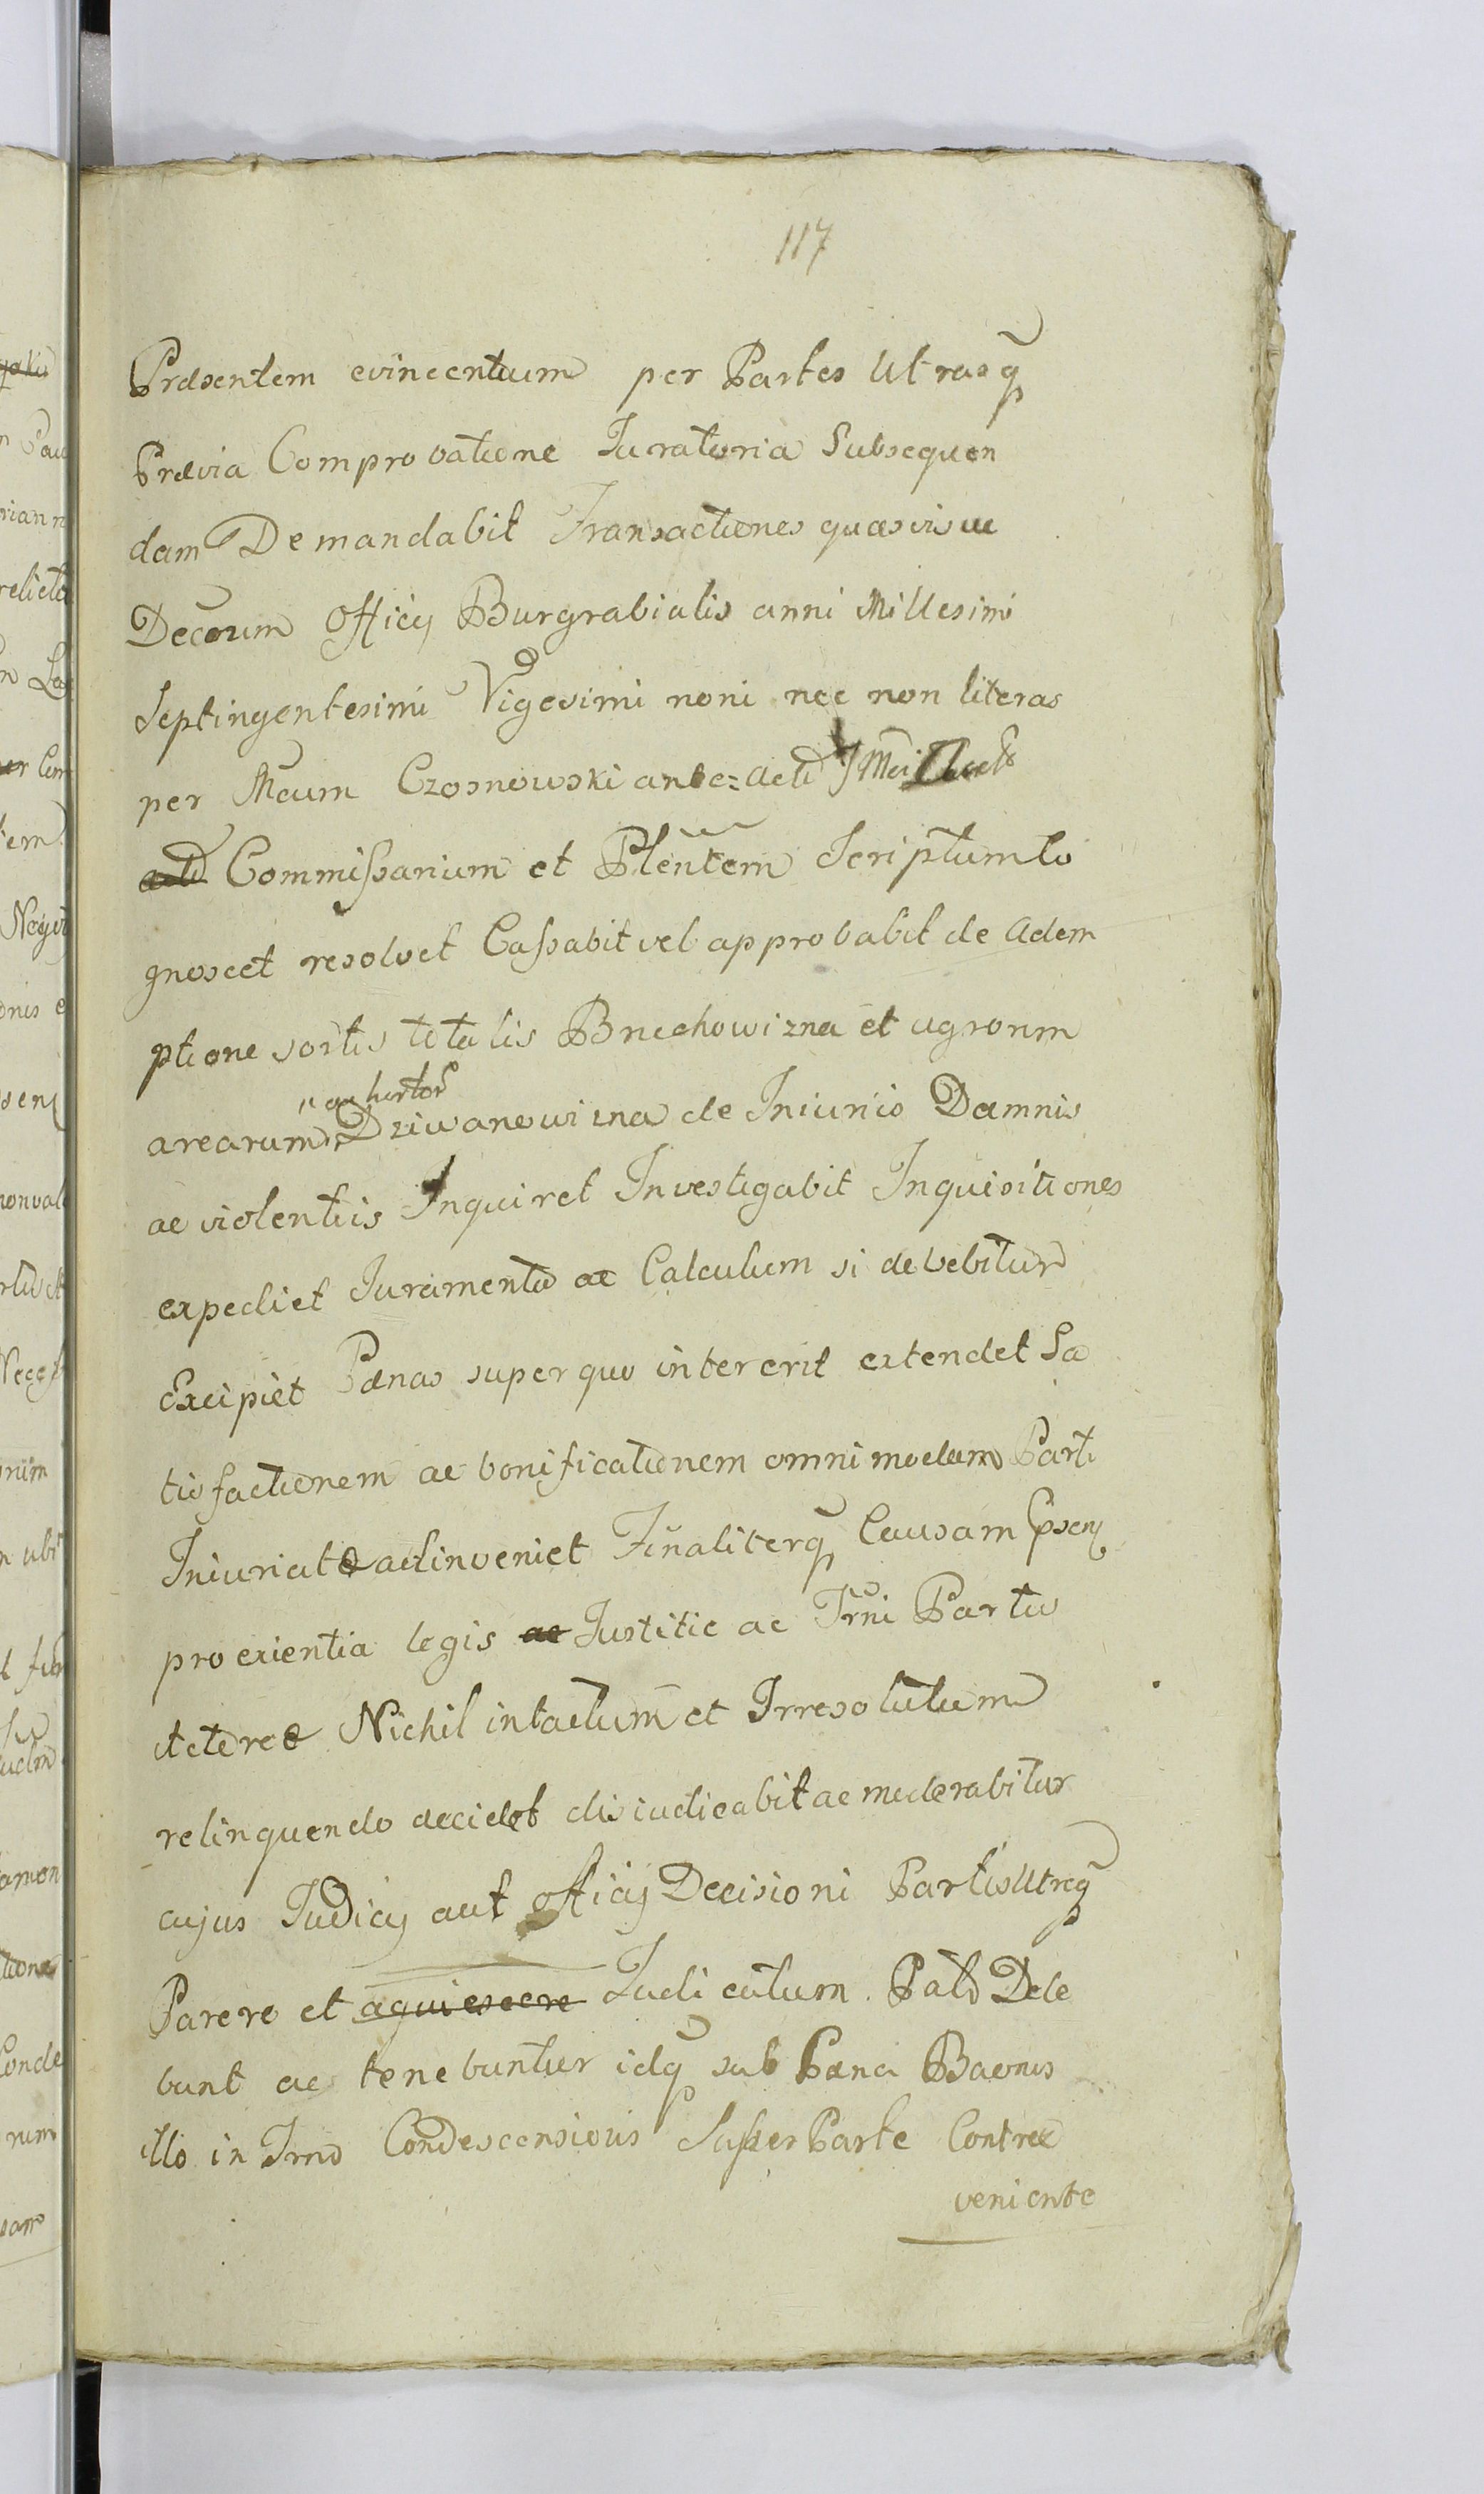 117
Præsentem evincentium per Partes Utrasq
Prævia Comprobatione Iuratoria Subsequen
dam Demandabit Transactiones quasvis ac
Decrum Officij Burgrabialis anni Millesimi
Septingentesimi Vigesimi noni nec non literas
per Mcum Czosnowski ante=actu
Commissarium et Plentem Scriptum Co
gnoscet resolvet Cassabit vel approbabit de Adem
ptione sortis totalis Bruchowizna et agrorum
ac hortor
arearum Dziwanowizna de Iniuriis Damnis
ac violentiis Inquiret Investigabit Inquisitiones
expediet Iuramenta ac Calculum si debebitur
Excipiet Pænas super quo intererit extendet Sa
tisfactionem ac bonificationem omnimodam Parti
Iniuriatæ adinveniet Finaliterq Causam Ipsam
pro exientia legis ac Iustitie ac Trni Partis
Actoreæ Nichil intactum et Irresolutum
relinquendo decidet disiudicabit ac moderabitur
cujus Iudicij aut Officij Decisioni Partes Utreq
Parere et aquiescere Iudicatum Pati Debe
bunt ac tenebuntur idq sub Pæna Baonis
illo in Trno Condescensionis Super Parte Contra
veniente